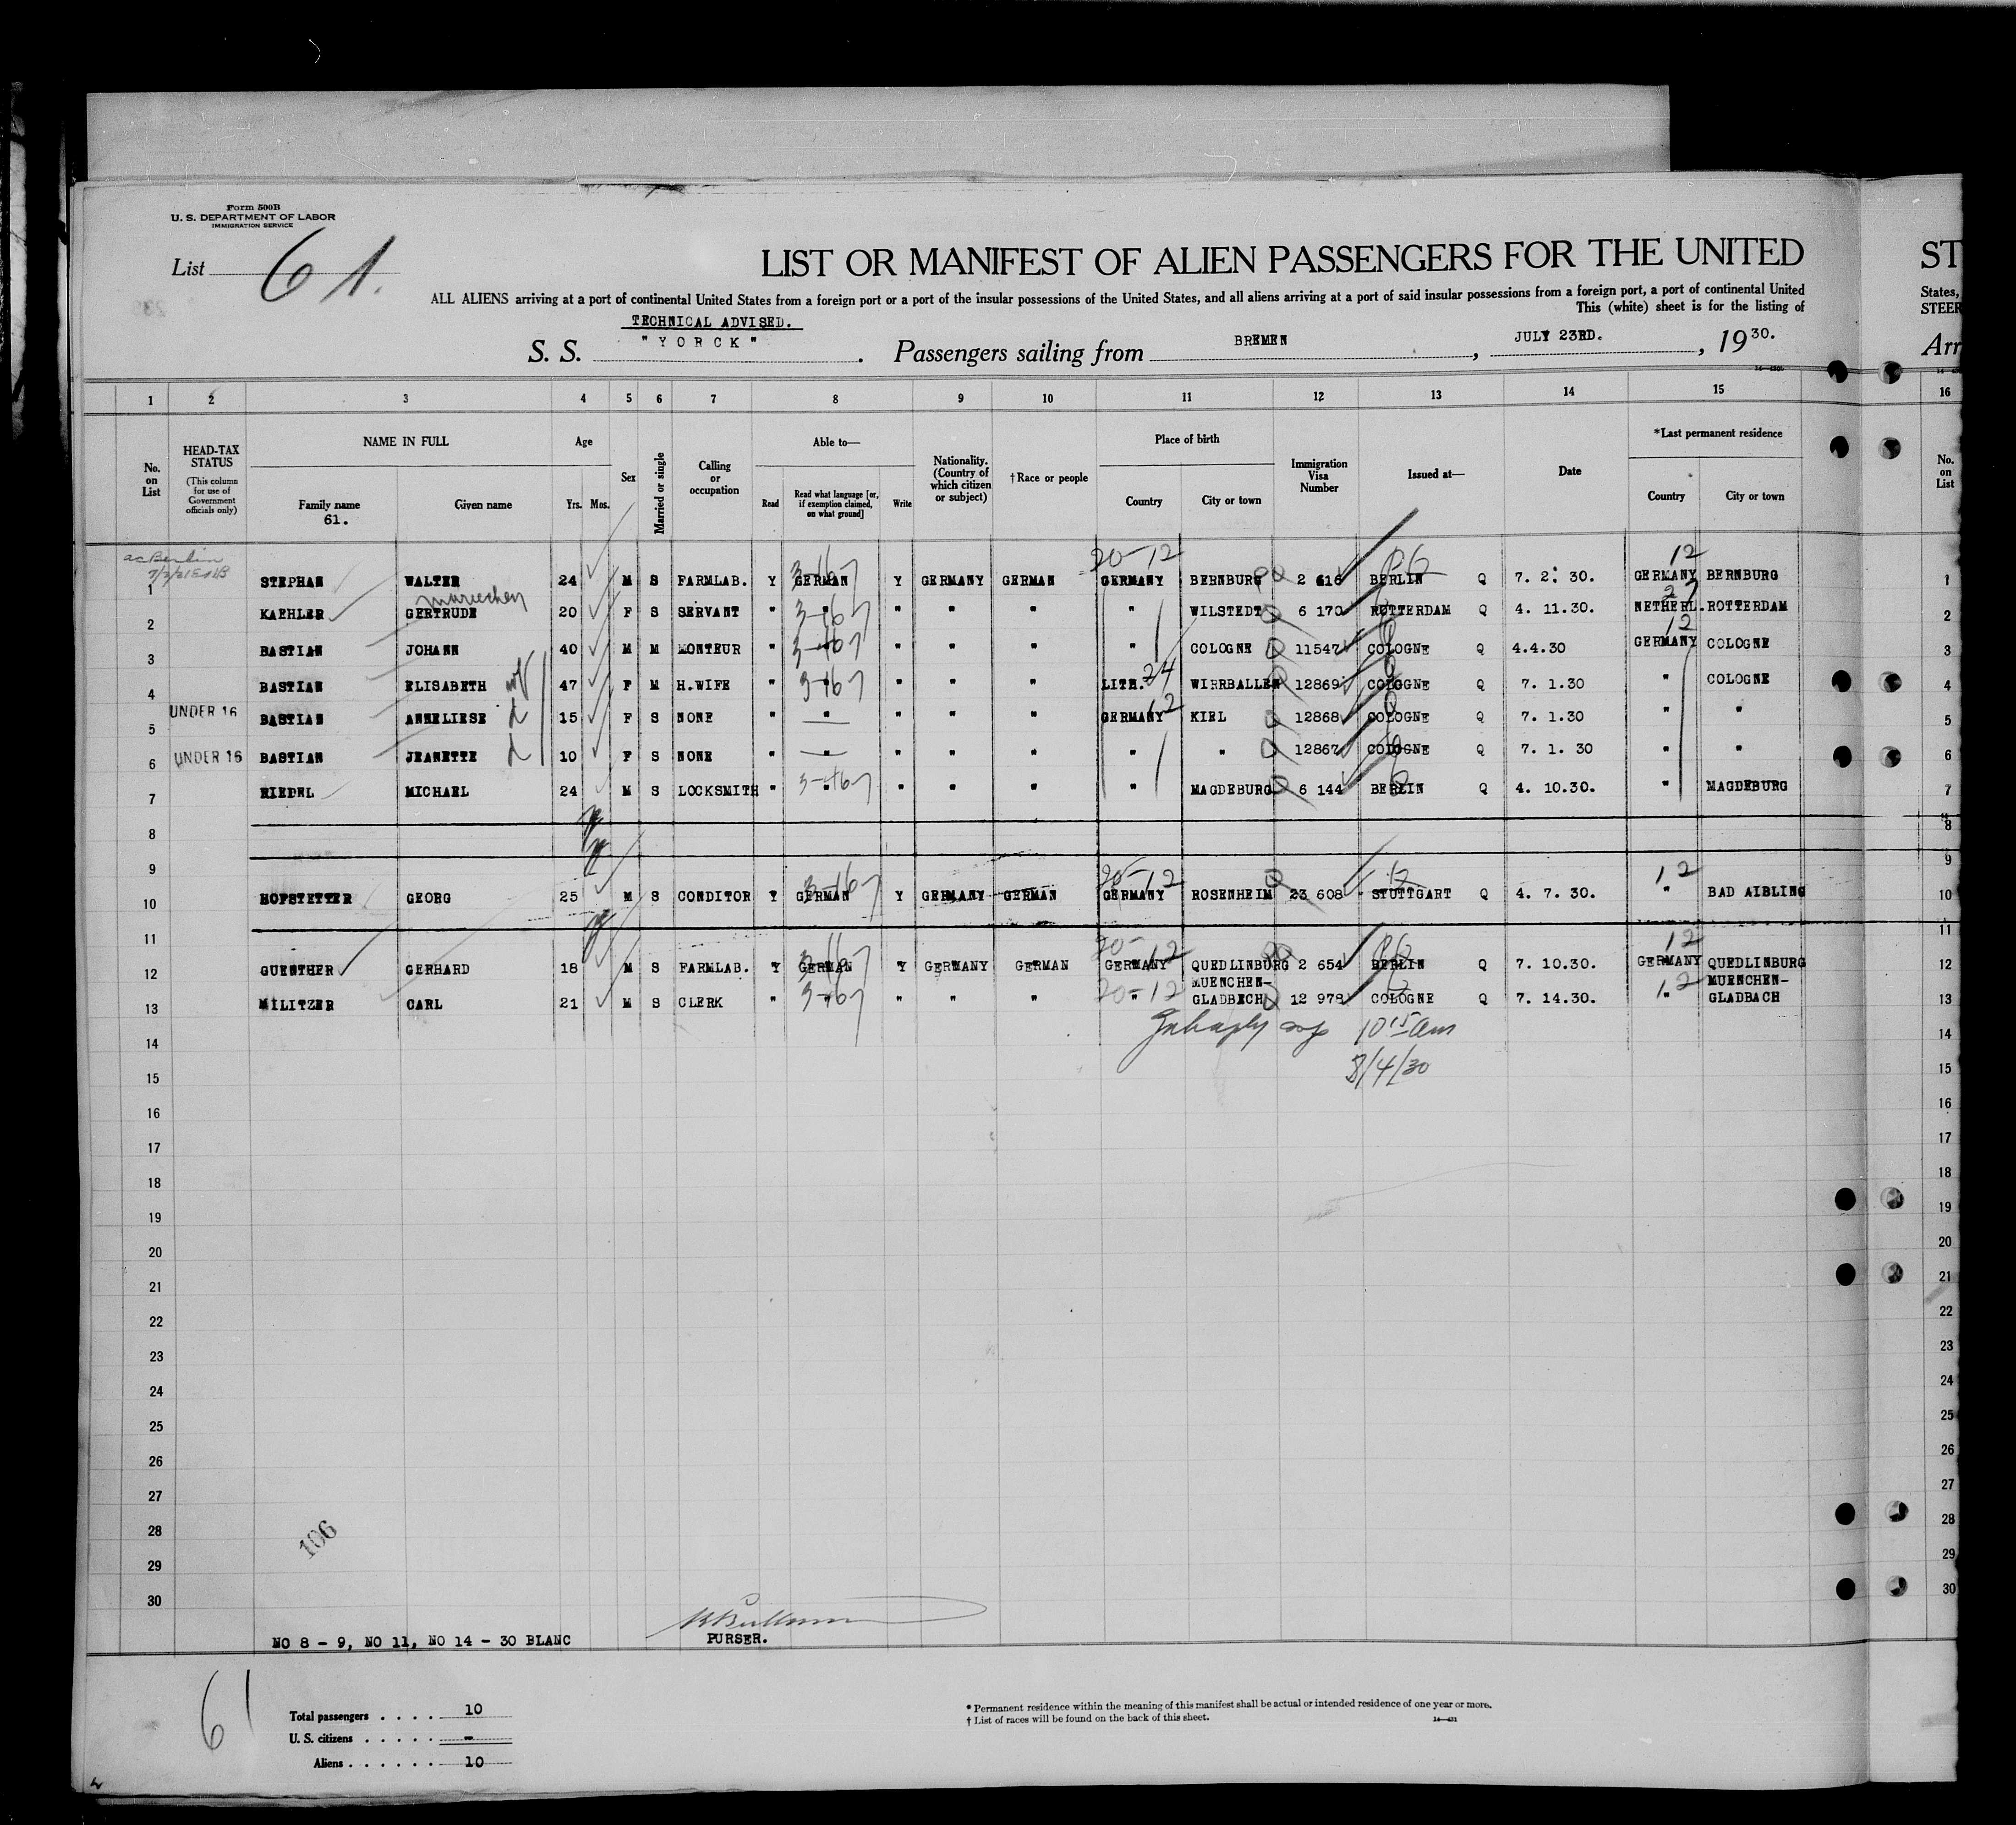 Form 500B
U. S. DEPARTMENT OF LABOR
IMMIGRATION SERVICE
List 61.
LIST OR MANIFEST OF ALIEN PASSENGERS FOR THE UNITED
ST
ALL ALIENS arriving at a port of continental United States from a foreign port or a port of the insular possessions of the United States, and all aliens arriving at a port of said insular possessions from a foreign port, a port of continental United
States,
This (white) sheet is for the listing of
STEER
TECHNICAL ADVISED.
S. S. "YORCK". Passengers sailing from BREMEN, JULY 23RD., 1930.
Arr
1 2 3 4 5 6 7 8 9 10 11 12 13 14 15 16
No. on List
HEAD-TAX STATUS (This column for use of Government officials only)
NAME IN FULL
Family name
61.
Given name
Age
Yrs. Mos.
Sex
Married or single
Calling or occupation
Able to—
Read
Read what language [or, if exemption claimed, on what ground]
Write
Nationality. (Country of which citizen or subject)
†Race or people
Place of birth
Country
City or town
Immigration Visa Number
Issued at—
Date
*Last permanent residence
Country
City or town
No. on List
ac Berlin
20-12 12
1 STEPHAN WALTER 24 M S FARMLAB. Y GERMAN 3-167 Y GERMANY GERMAN GERMANY BERNBURG 2 616 BERLIN Q 7. 2. 30. GERMANY BERNBURG 1
Mariechen 27
2 KAEHLER GERTRUDE 20 F S SERVANT " " 3-167 " " " " WILSTEDT 6 170 ROTTERDAM Q 4. 11.30. NETHERL. ROTTERDAM 2
12
3 BASTIAN JOHANN 40 M M MONTEUR " " 3-167 " " " " COLOGNE 11547 COLOGNE Q 4.4.30 GERMANY COLOGNE 3
24
4 BASTIAN ELISABETH wf 47 F M H.WIFE " " 3-167 " " " LITH. WIRRBALLEN 12869 COLOGNE Q 7. 1.30 " COLOGNE 4
12
5 UNDER 16 BASTIAN ANNELIESE d 15 F S NONE " " " " " GERMANY KIEL 12868 COLOGNE Q 7. 1.30 " " 5
6 UNDER 16 BASTIAN JEANETTE d 10 F S NONE " " " " " " " 12867 COLOGNE Q 7. 1. 30 " " 6
7 RIEDEL MICHAEL 24 M S LOCKSMITH " " 3-167 " " " " MAGDEBURG 6 144 BERLIN Q 4. 10.30. " MAGDEBURG 7
8 8
9 9
20-12 12
10 HOFSTETTER GEORG 25 M S CONDITOR Y GERMAN 3-167 Y GERMANY GERMAN GERMANY ROSENHEIM 23 608 STUTTGART Q 4. 7. 30. " BAD AIBLING 10
11 11
20-12 12
12 GUENTHER GERHARD 18 M S FARMLAB. Y GERMAN 3-167 Y GERMANY GERMAN GERMANY QUEDLINBURG 2 654 BERLIN Q 7. 10.30. GERMANY QUEDLINBURG 12
20-12 12
13 MILITZER CARL 21 M S CLERK " " 3-167 " " " " MUENCHEN-GLADBACH 12 978 COLOGNE Q 7. 14.30. " MUENCHEN-GLADBACH 13
14 10 15 am 14
15 8/4/30 15
16 16
17 17
18 18
19 19
20 20
21 21
22 22
23 23
24 24
25 25
26 26
27 27
28 106 28
29 29
30 30
NO 8 - 9, NO 11, NO 14 - 30 BLANC
PURSER.
61
Total passengers . . . . 10
U. S. citizens . . . . . -
Aliens . . . . . . 10
* Permanent residence within the meaning of this manifest shall be actual or intended residence of one year or more.
† List of races will be found on the back of this sheet.